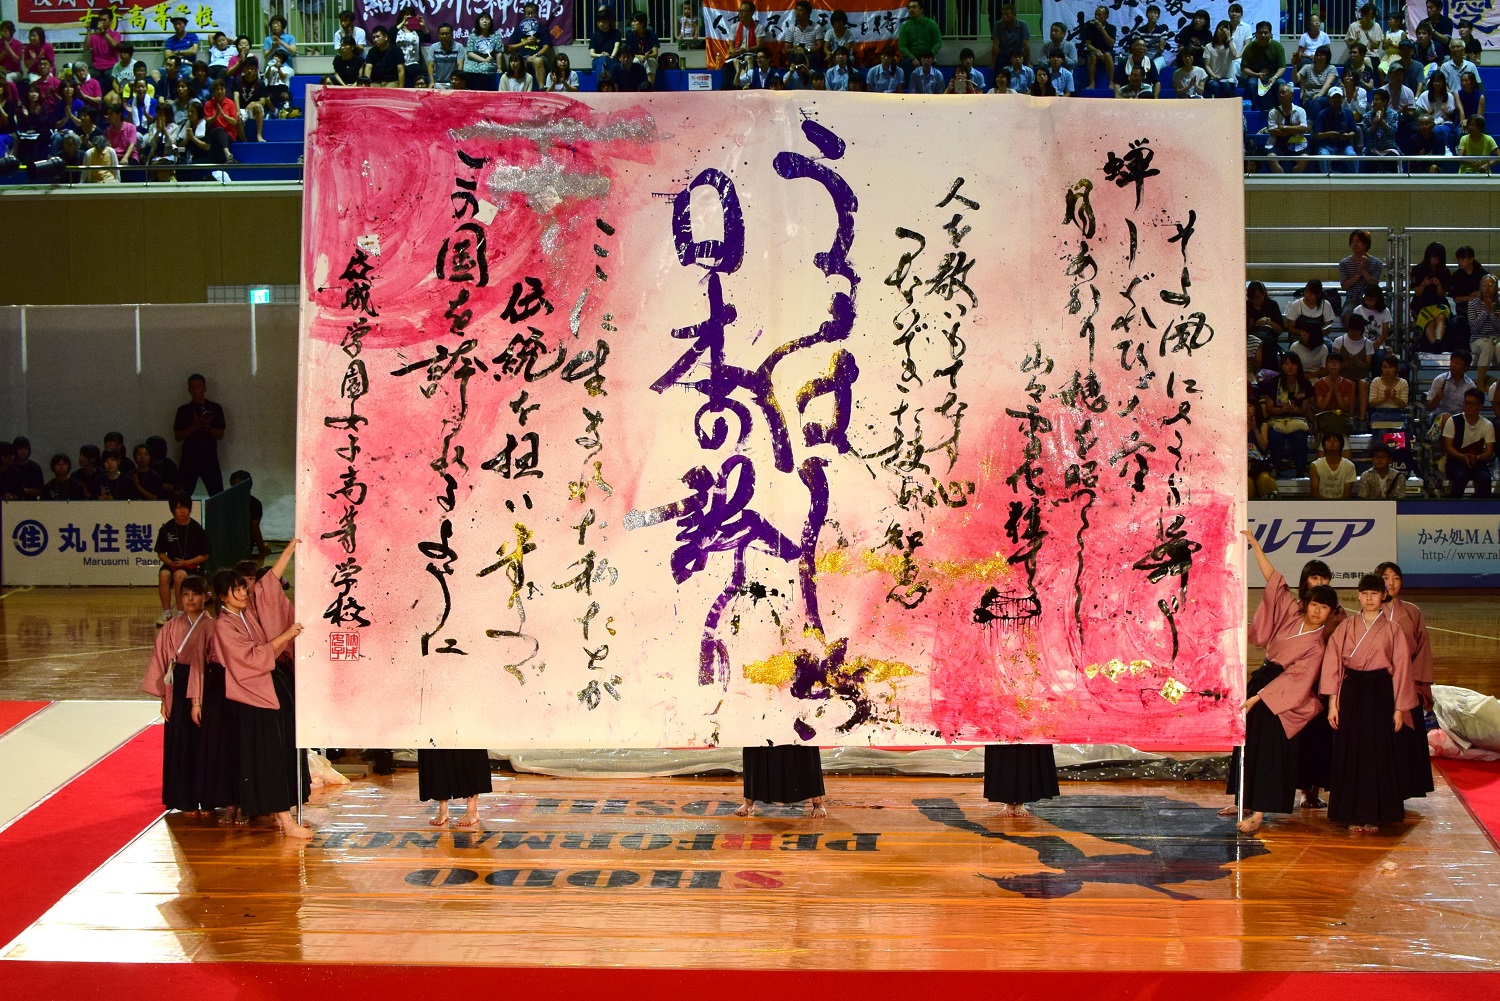 女子高等学校
そよ風にさくら舞い
蝉しぐれひびく空
月あかり穂を照らし
山々雪化粧す
人を敬いもてなす心
つむぎだす技と智恵
うるはしき
日本の誇り
ここに生まれた私たちが
伝統を担い
この国を誇れるように
佼成学園女子高等学校
丸住製
Marusumi Paper
ルモア
かみ処MA
http://www.ra
SHODO
PERFORMANCE